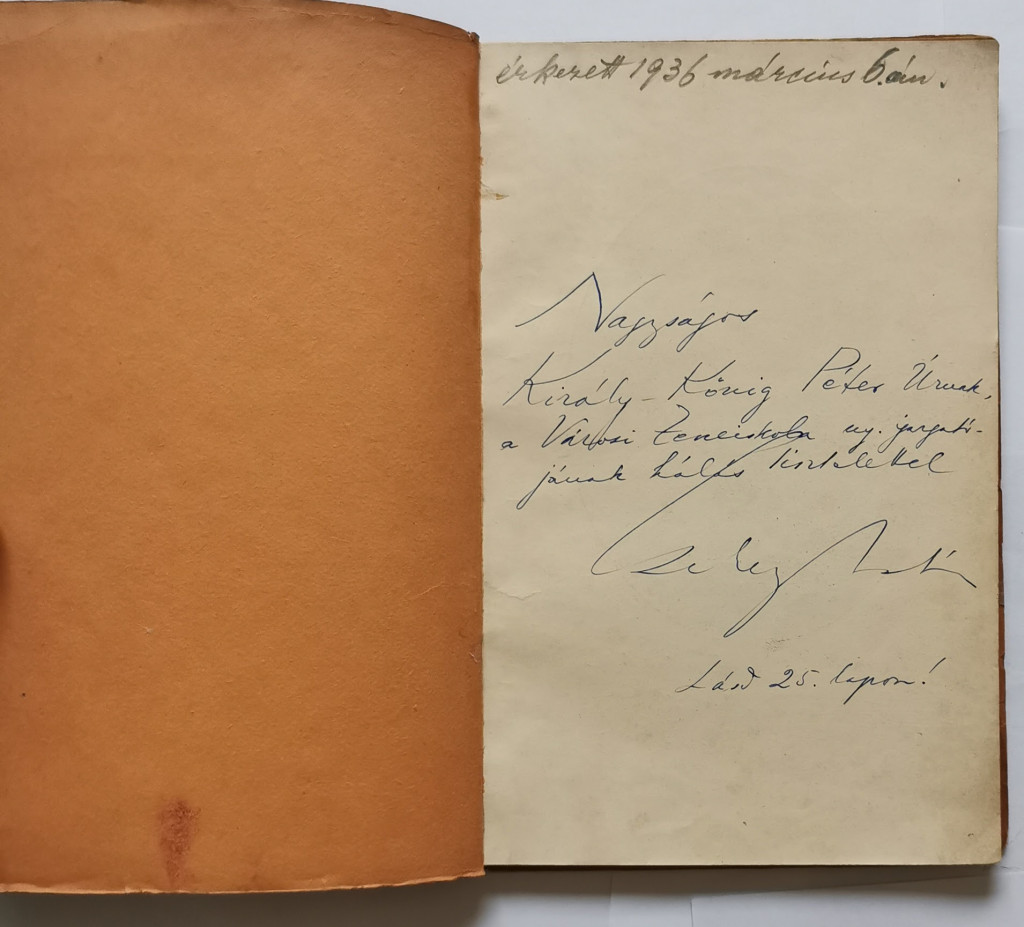 érkezett 1936 március 6.án.
Nagyságos
Király-König Péter Úrnak,
a Városi Zeneiskola ny. igazgató-
jának hálás tisztelettel
Lásd 25. lapon!